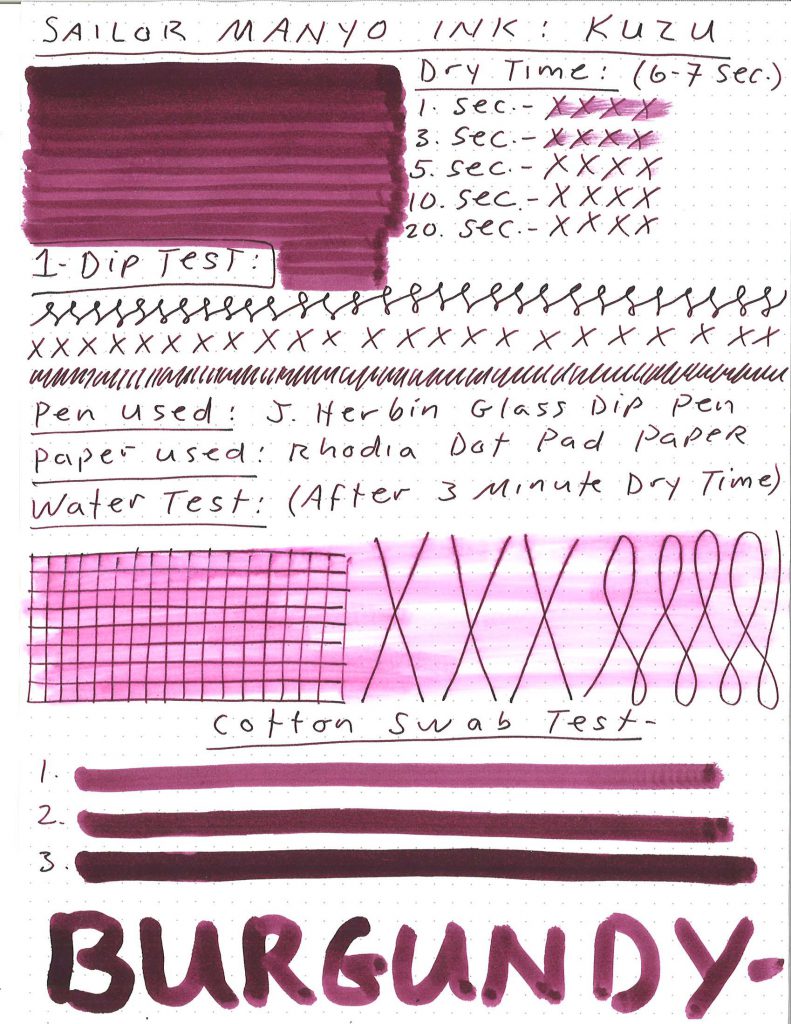 SAILOR MANYO INK: KUZU
Dry Time: (6-7 sec.)
1. sec.- XXXX
3. sec.- XXXX
5. sec.- XXXX
10. sec.- XXXX
20. sec.- XXXX
1-Dip Test:
XXXXXXXXXXXXXXXXXXXXXXXXXX
Pen used: J. Herbin Glass Dip Pen
Paper used: Rhodia Dot Pad Paper
Water Test: (After 3 Minute Dry Time)
XXX
Cotton Swab Test-
1.
2.
3.
BURGUNDY-